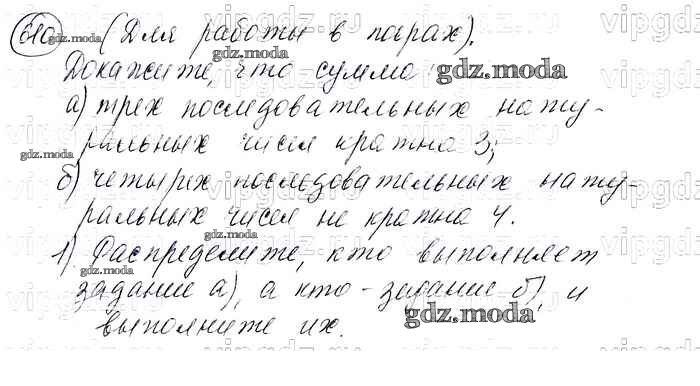 610. (Для работы в парах).
Докажите, что сумма:
а) трех последовательных нату-
ральных чисел кратна 3;
б) четырех последовательных нату-
ральных чисел не кратна 4.
1) Распределите, кто выполняет
задание а), а кто - задание б), и
выполните их.
gdz.moda
gdz.moda
gdz.moda
gdz.moda
gdz.moda
gdz.moda
gdz.moda
vipgdz.ru